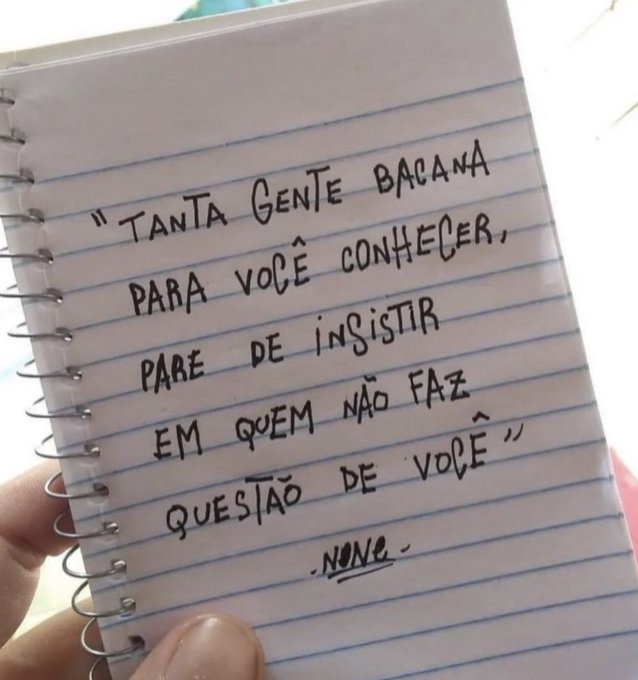 "TANTA GENTE BACANA
PARA VOCÊ CONHECER,
PARE DE INSISTIR
EM QUEM NÃO FAZ
QUESTÃO DE VOCÊ"